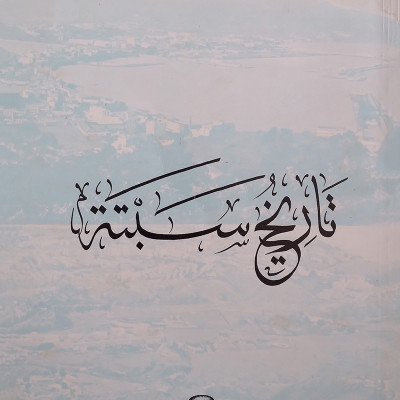 تاريخ سَبْتَة